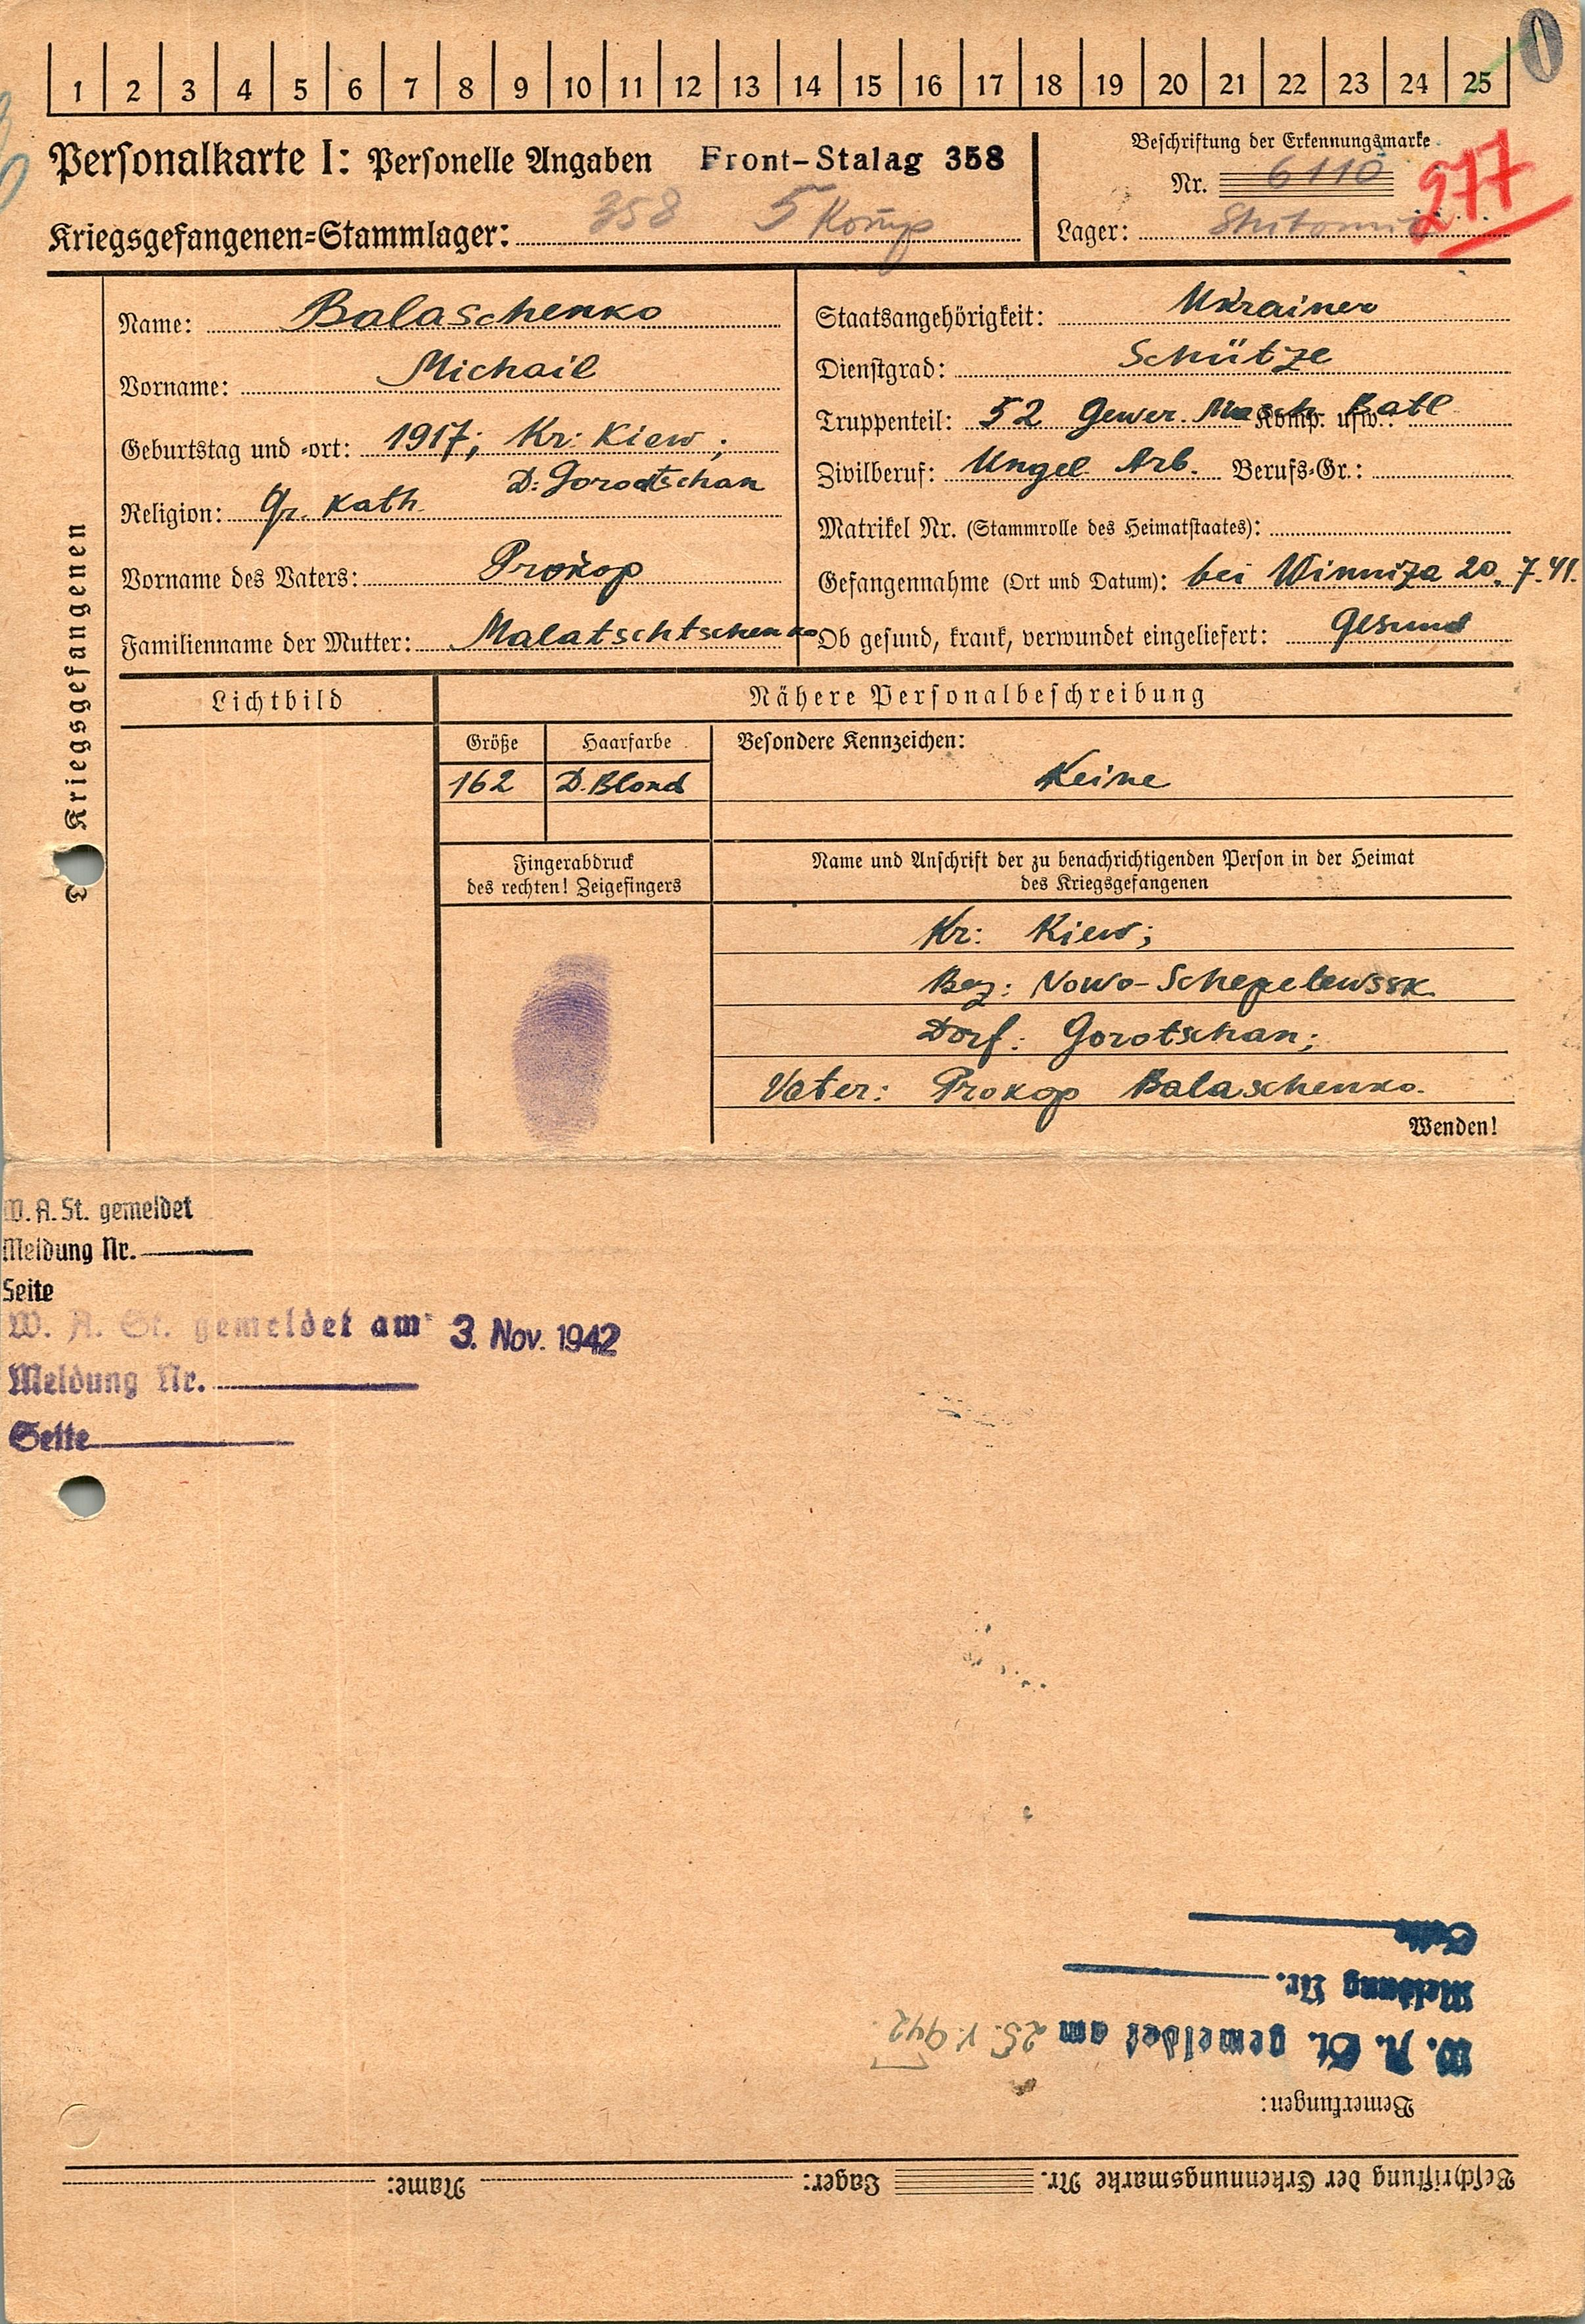 1 2 3 4 5 6 7 8 9 10 11 12 13 14 15 16 17 18 19 20 21 22 23 24 25
Personalkarte I: Personelle Angaben Front-Stalag 358
Kriegsgefangenen-Stammlager: 358 5 Komp
Beschriftung der Erkennungsmarke
Nr. 6110 277
Lager:
Kriegsgefangenen
Name: Balaschenko
Vorname: Michail
Geburtstag und -ort: 1917; Kr: Kiew;
D: Gorodtschan
Religion: Gr. Kath.
Vorname des Vaters: Prokop
Familienname der Mutter: Malatschtschenko
Staatsangehörigkeit: Ukrainer
Dienstgrad: Schütze
Truppenteil: 52 Gewer. Komp. usw.: Batl
Zivilberuf: Ungel. Arb. Berufs-Gr.:
Matrikel Nr. (Stammrolle des Heimatstaates):
Gefangennahme (Ort und Datum): bei Winniza 20.7.41.
Ob gesund, krank, verwundet eingeliefert: Gesund
Lichtbild
Nähere Personalbeschreibung
Größe Haarfarbe Besondere Kennzeichen:
162 D. Blond Keine
Fingerabdruck
des rechten! Zeigefingers
Name und Anschrift der zu benachrichtigenden Person in der Heimat
des Kriegsgefangenen
Kr: Kiew;
Bez: Nowo-Schepelewssk
Dorf: Gorotschan;
Vater: Prokop Balaschenko.
Wenden!
W. A. St. gemeldet
Meldung Nr.
Seite
W. A. St. gemeldet am 3. Nov. 1942
Meldung Nr.
Seite
Seite
Meldung Nr.
W. A. St. gemeldet am 25. V. 942
Bemerkungen:
Beschriftung der Erkennungsmarke Nr. Lager: Name: